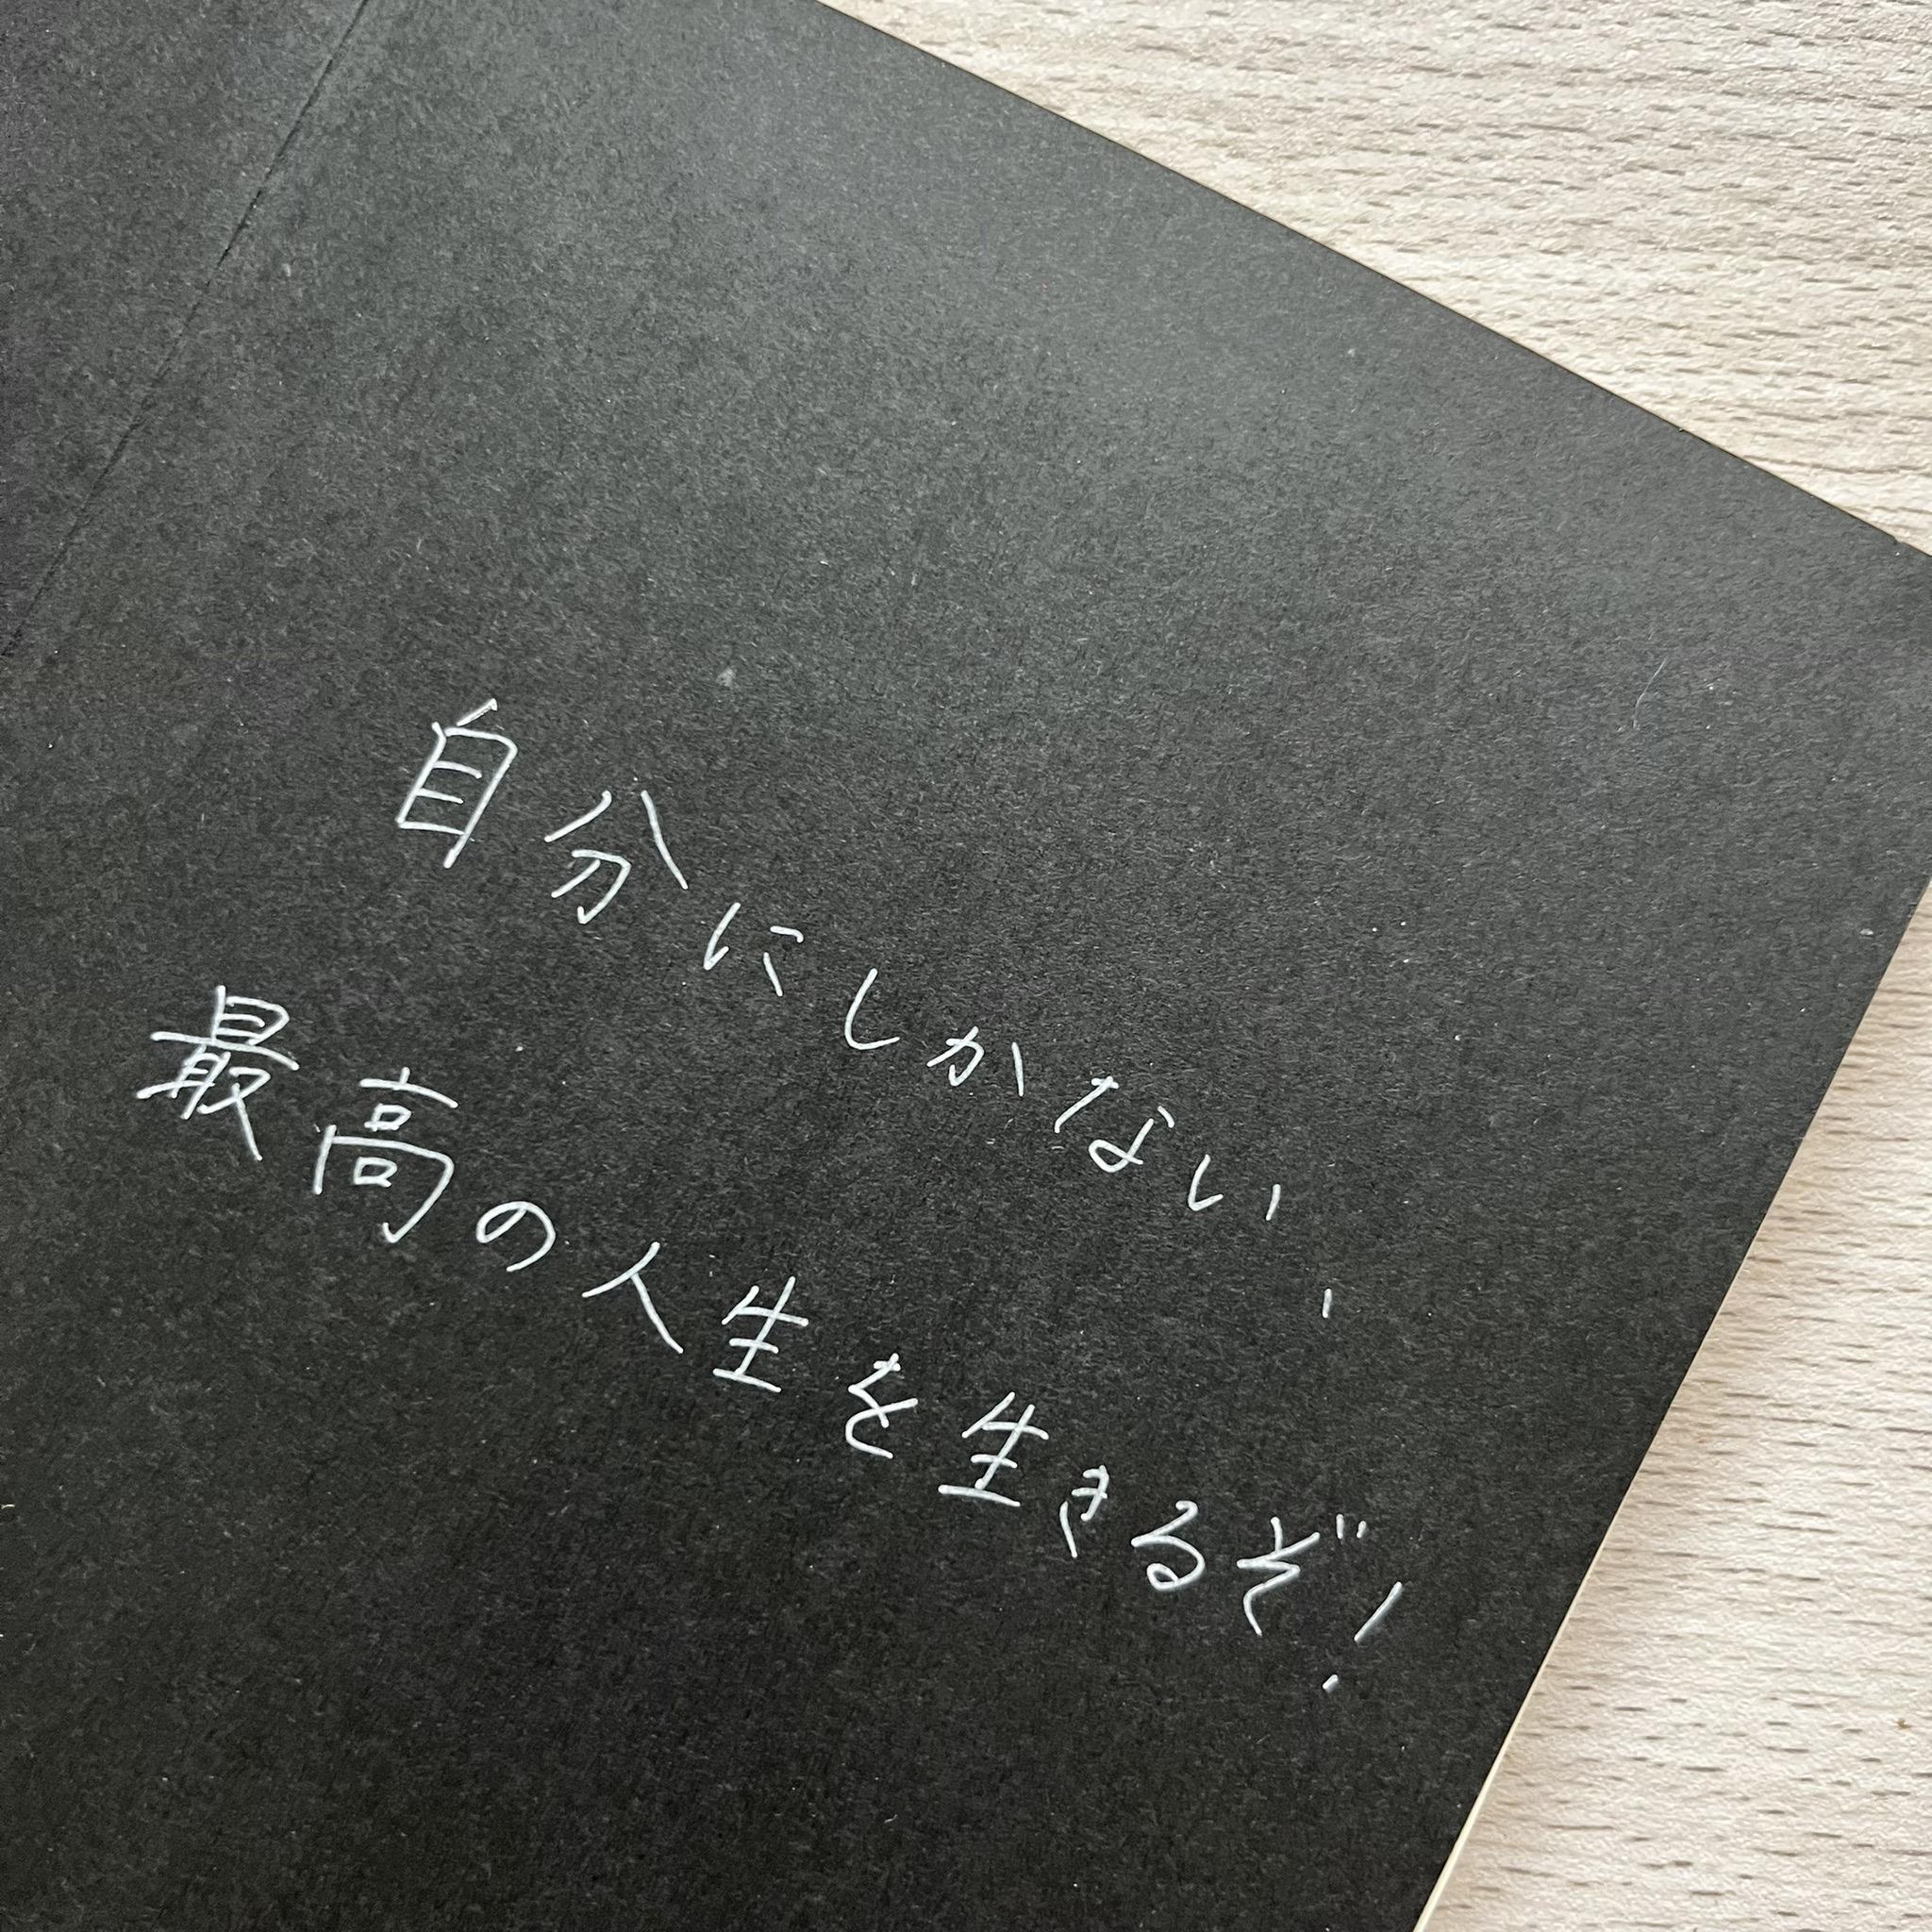 自分にしかない、
最高の人生を生きるぞ！